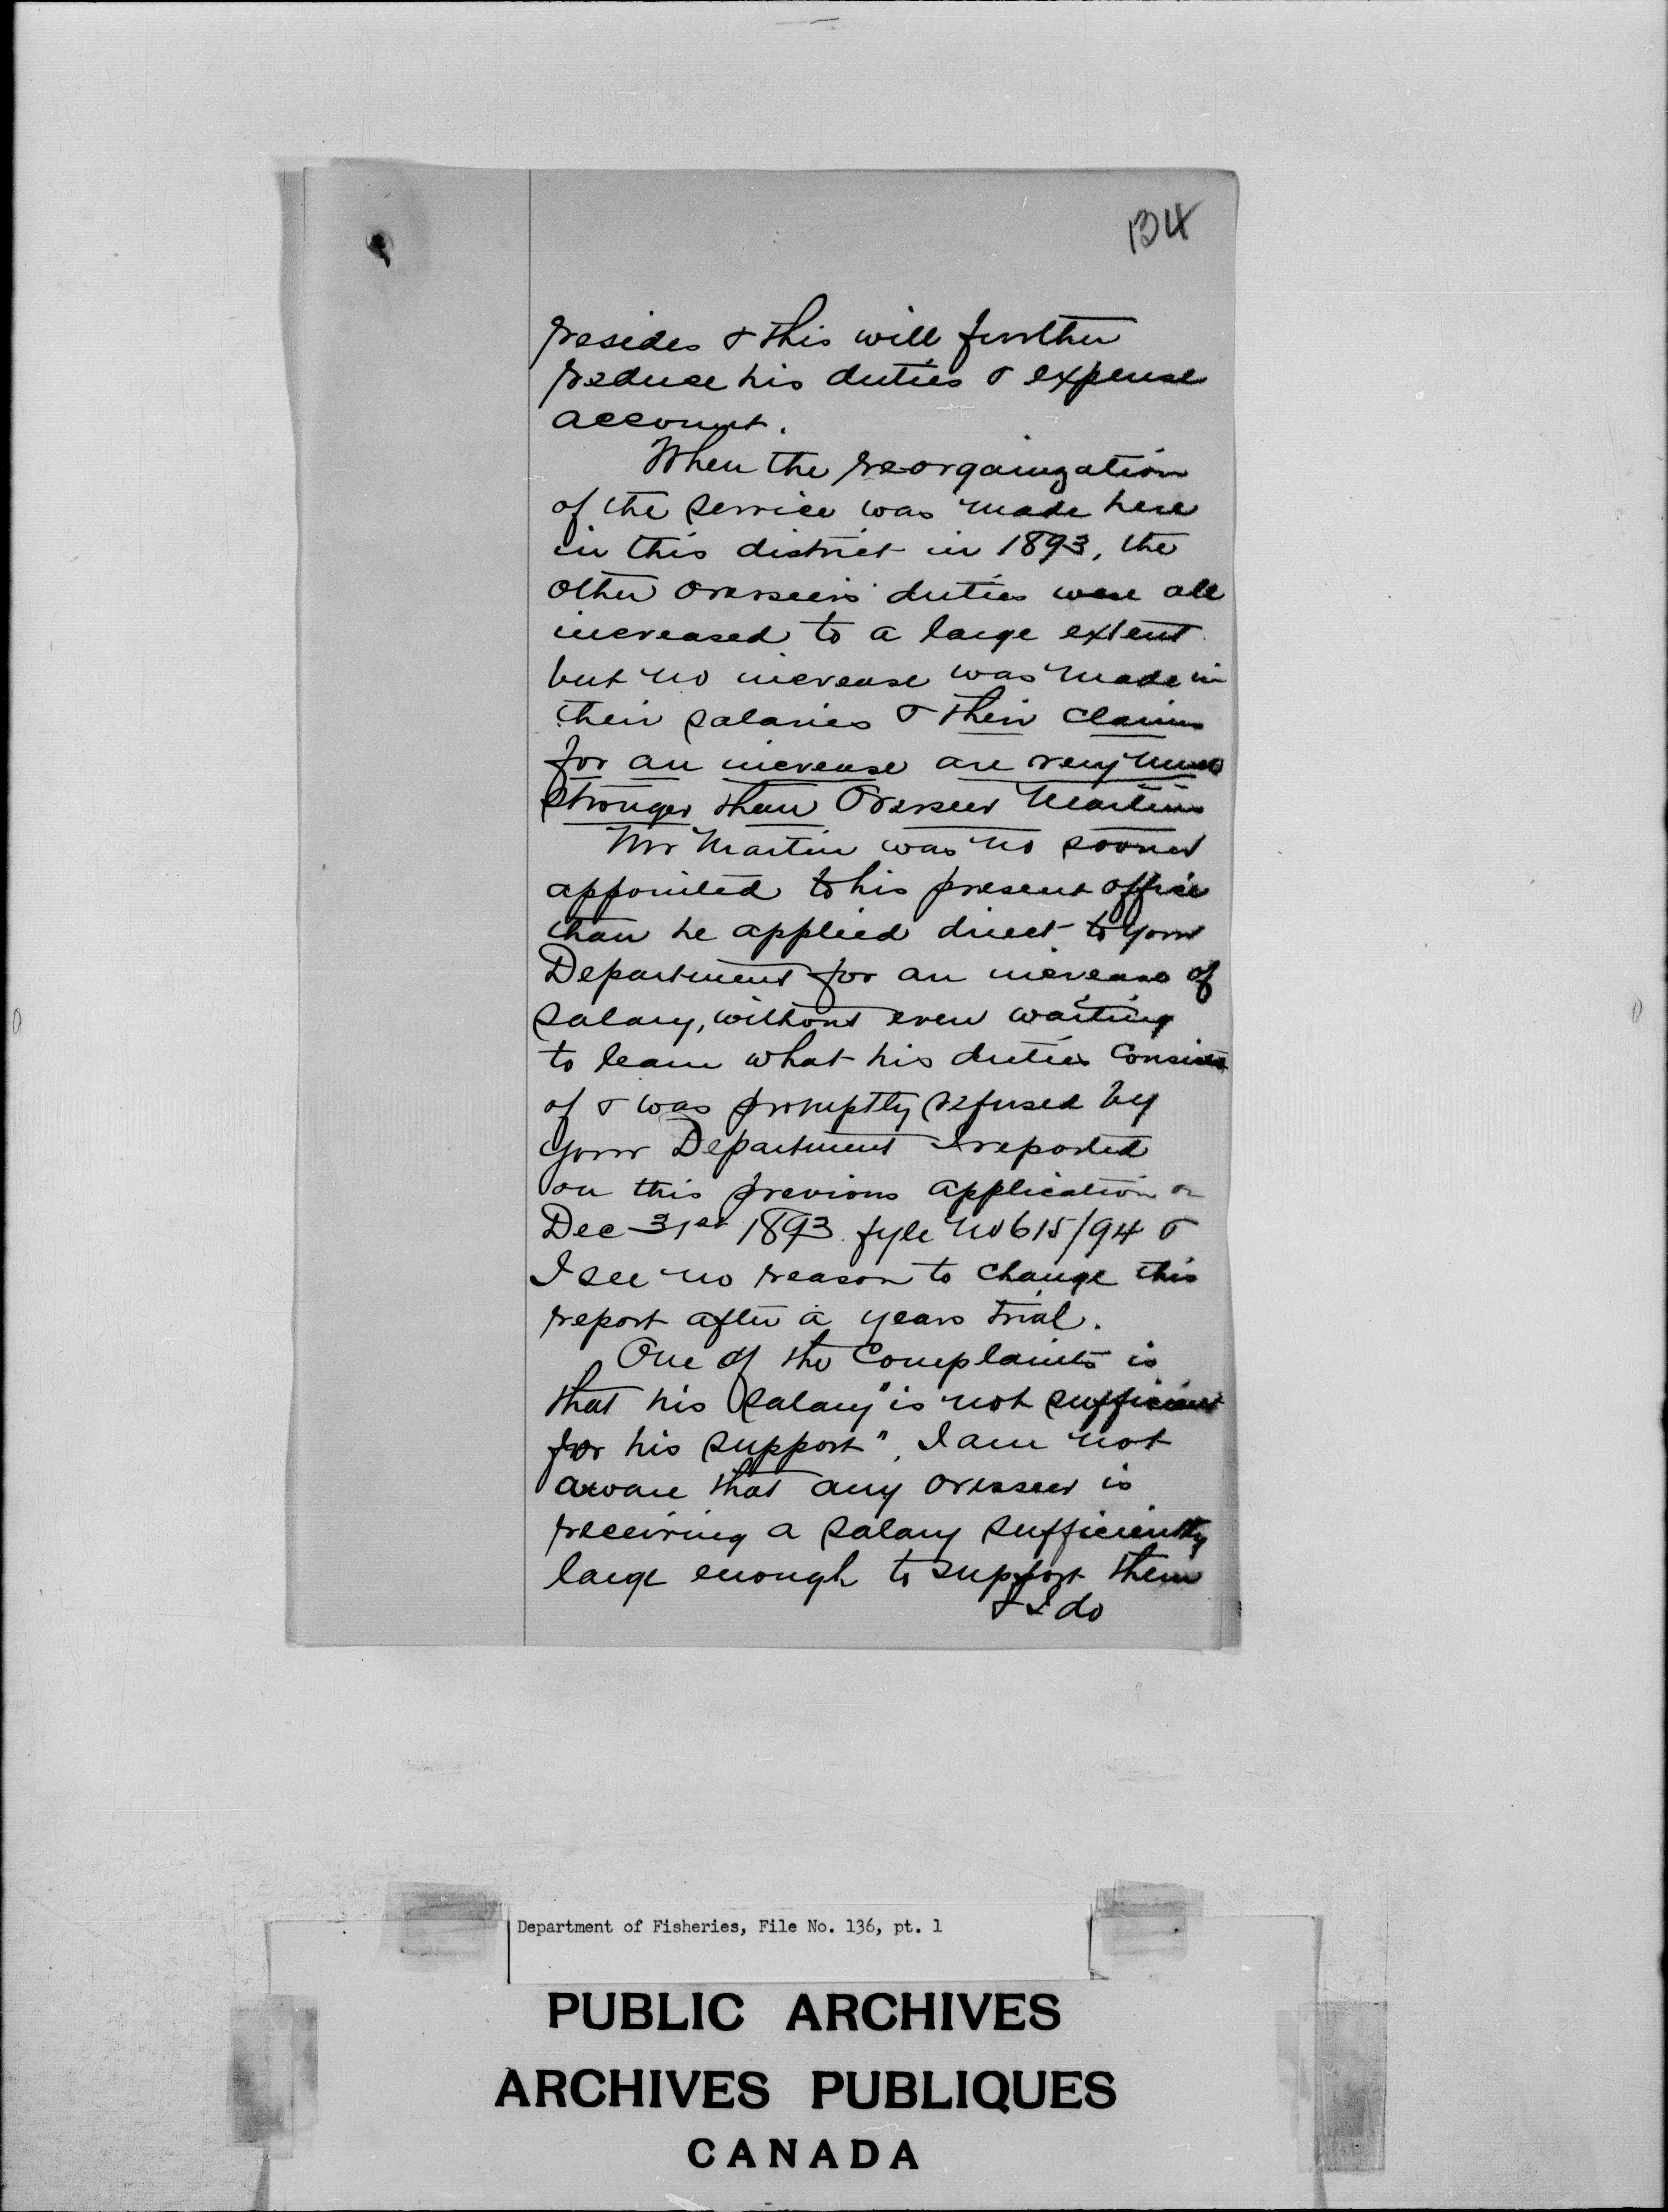 134
resides & this will further
reduce his duties & expense
account.
When the reorganization
of the service was made here
in this district in 1893, the
other overseers duties were all
increased to a large extent
but no increase was made in
their salaries & their claims
for an increase are very much
stronger than Overseer Martins
Mr Martin was no sooner
appointed to his present office
than he applied direct to your
Department for an increase of
salary, without even waiting
to learn what his duties consisted
of & was promptly refused by
your Department I reported
on this previous application on
Dec 31st 1893 fyle No 615/94 &
I see no reason to change this
report after a years trial.
One of the complaints is
that his salary "is not sufficient
for his support". I am not
aware that any overseer is
receiving a salary sufficiently
large enough to support them
& I do
Department of Fisheries, File No. 136, pt. 1
PUBLIC ARCHIVES
ARCHIVES PUBLIQUES
CANADA